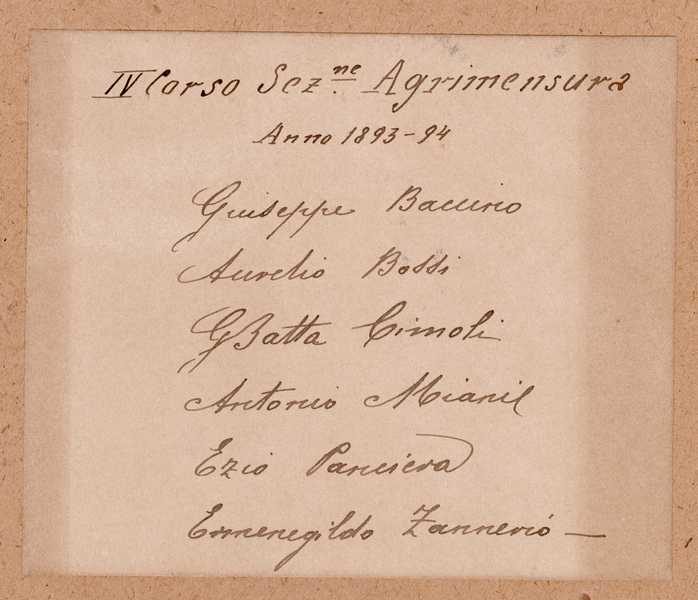 IV Corso Sez.ne Agrimensura
Anno 1893-94
Giuseppe Baccino
Aurelio Bossi
GBatta Cimoli
Antonio Mianil
Ezio Panciera
Ermenegildo Zannerio —